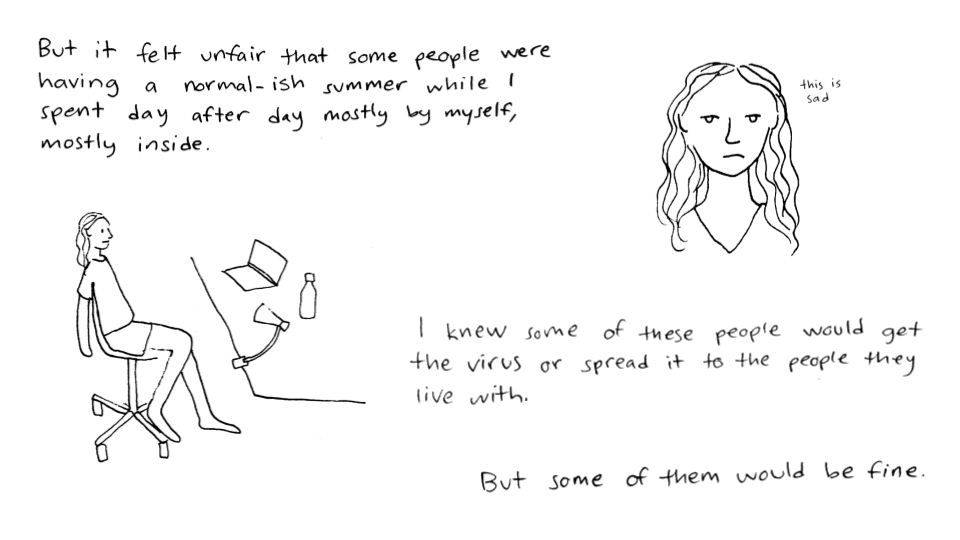 But it felt unfair that some people were
having a normal-ish summer while I
spent day after day mostly by myself,
mostly inside.
this is
sad
I knew some of these people would get
the virus or spread it to the people they
live with.
But some of them would be fine.